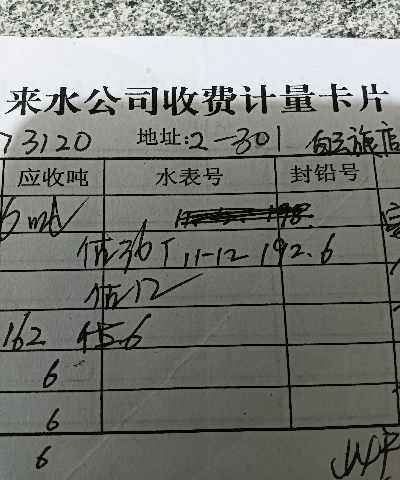 来水公司收费计量卡片
73120 地址:2-301 白云旅店
应收吨 水表号 封铅号
估36T 11-12 192.6
估12
162 45.6
6
6
6